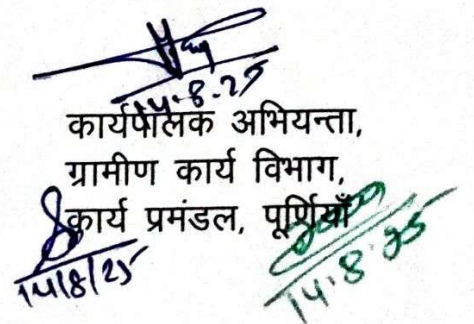 14.8.25
कार्यपालक अभियन्ता,
ग्रामीण कार्य विभाग,
कार्य प्रमंडल, पूर्णियाँ
14/8/25
14.8.25